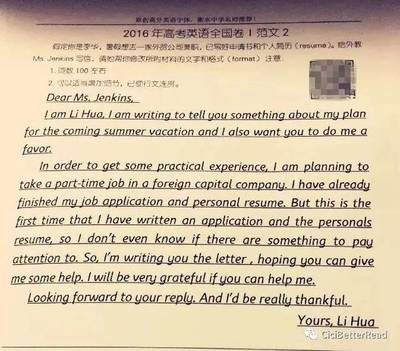 原创高分英语字体,衡水中学名师推荐!
2016年高考英语全国卷Ⅰ范文2
假定你是李华,暑假想去一家外贸公司兼职,已写好申请书和个人简历(resume)。给外教
Ms. Jenkins 写信,请她帮你修改所附材料的文字和格式(format)注意:
1. 词数100左右
2. 可以适当增加细节,已使行文连贯。
Dear Ms. Jenkins,
I am Li Hua, I am writing to tell you something about my plan
for the coming summer vacation and I also want you to do me a
favor.
In order to get some practical experience, I am planning to
take a part-time job in a foreign capital company. I have already
finished my job application and personal resume. But this is the
first time that I have written an application and the personals
resume, so I don't even know if there are something to pay
attention to. So, I'm writing you the letter , hoping you can give
me some help. I will be very grateful if you can help me.
Looking forward to your reply. And I'd be really thankful.
Yours, Li Hua
CiciBetterRead